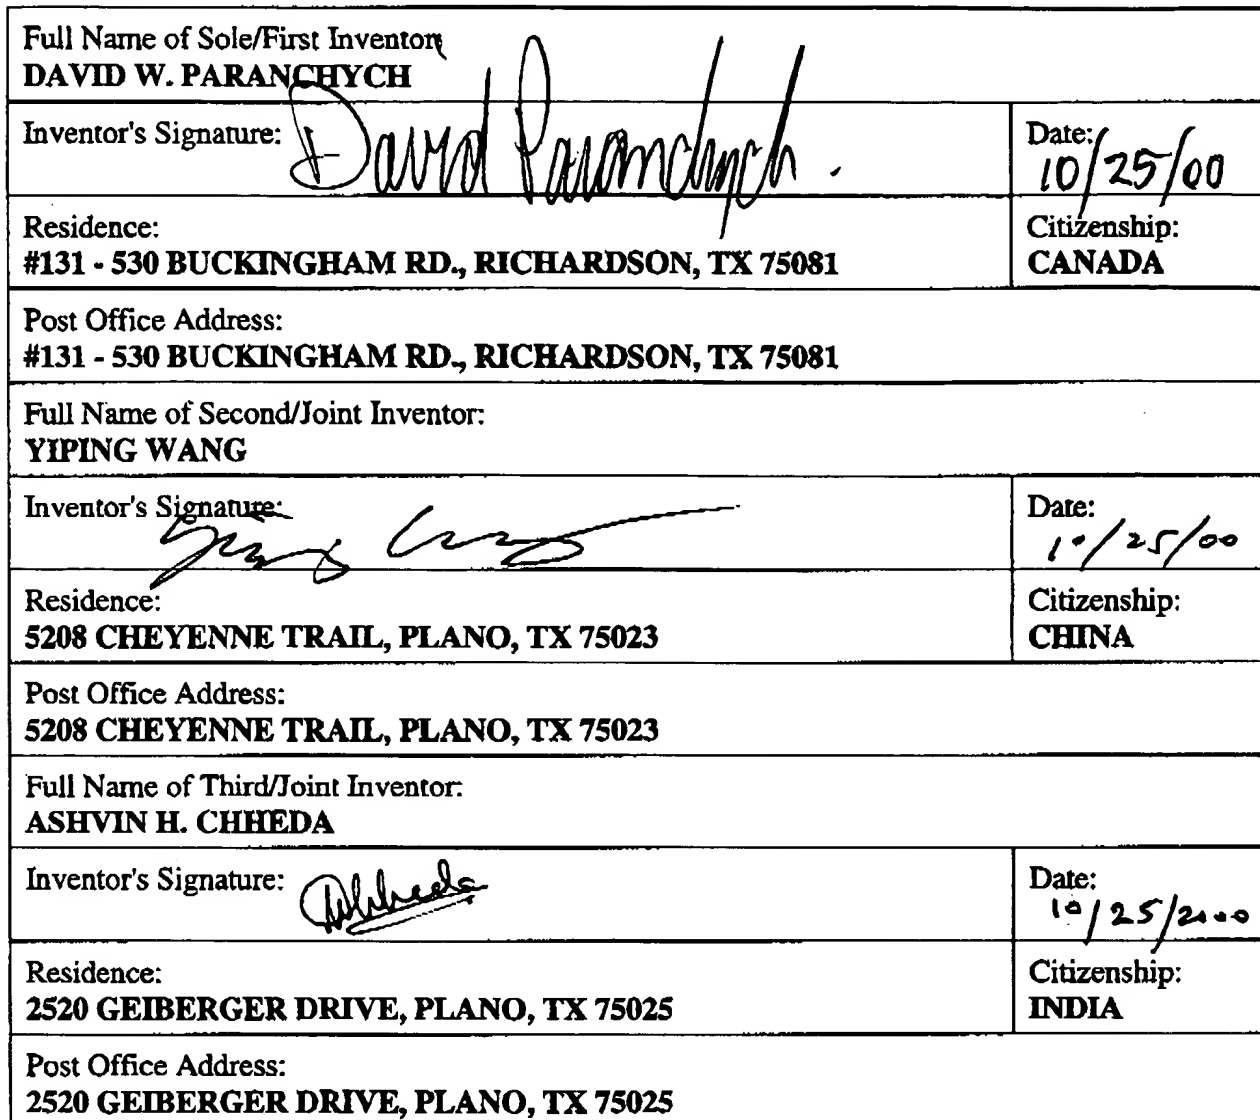 Full Name of Sole/First Inventor
DAVID W. PARANCHYCH
Inventor's Signature: David Paranchych.
Date:
10/25/00
Residence:
#131 - 530 BUCKINGHAM RD., RICHARDSON, TX 75081
Citizenship:
CANADA
Post Office Address:
#131 - 530 BUCKINGHAM RD., RICHARDSON, TX 75081
Full Name of Second/Joint Inventor:
YIPING WANG
Inventor's Signature:
Date:
10/25/00
Residence:
5208 CHEYENNE TRAIL, PLANO, TX 75023
Citizenship:
CHINA
Post Office Address:
5208 CHEYENNE TRAIL, PLANO, TX 75023
Full Name of Third/Joint Inventor:
ASHVIN H. CHHEDA
Inventor's Signature:
Date:
10/25/2000
Residence:
2520 GEIBERGER DRIVE, PLANO, TX 75025
Citizenship:
INDIA
Post Office Address:
2520 GEIBERGER DRIVE, PLANO, TX 75025